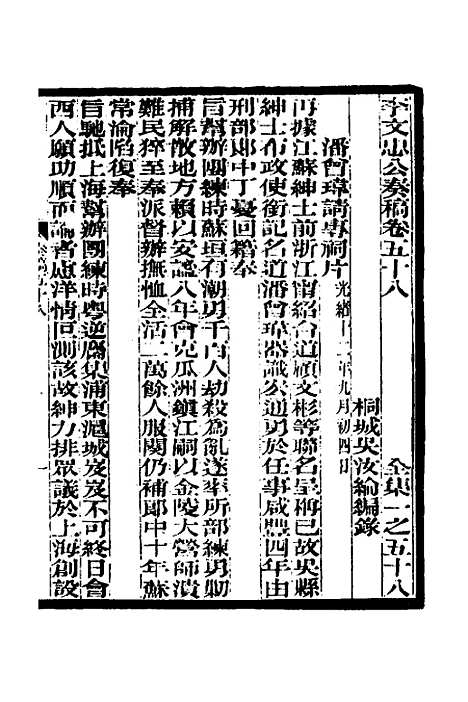 李文忠公奏稿卷五十八 全集一之五十八
桐城吳汝綸編錄
潘曾瑋請專祠片 光緒十二年九月初四日
再據江蘇紳士前浙江甯紹台道顧文彬等聯名呈稱已故吳縣
紳士布政使銜記名道潘曾瑋器識公通勇於任事咸豐四年由
刑部郎中丁憂回籍奉
旨幫辦團練時蘇垣有潮勇千百人劫殺為亂遂率所部練勇勦
捕解散地方賴以安謐八年會克瓜洲鎮江嗣以金陵大營師潰
難民猝至奉派督辦撫恤全活二萬餘人服闋仍補郎中十年蘇
常淪陷復奉
旨馳抵上海幫辦團練時粵逆屬集浦東滬城岌岌不可終日會
西人願助順而論者慮洋情叵測該故紳力排眾議於上海創設